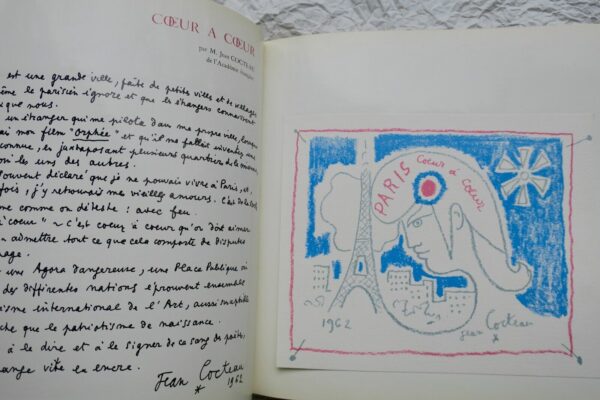 CŒUR A CŒUR
par M. Jean COCTEAU
de l'Académie française
est une grande ville, faite de petits villes et de villages
ême le parisien ignore et que les étrangers connaissent
que nous.
un étranger qui me pilota dans ma propre ville, lorsque
ai mon film "Orphée" et qu'il me fallait inventer une
connue, en juxtaposant plusieurs quartiers de la même
les uns des autres.
souvent déclaré que je ne pouvais vivre à Paris, et,
fois, j'y retournai me vieilles amours. C'est de la
me comme on déteste : avec feu
cœur" ~ c'est cœur à cœur qu'on doit aimer
admettre tout ce que cela comporte de disputes
nage.
une Agora dangereuse, une Place Publique où
des différentes nations éprouvent ensemble
isme international de l'Art, aussi
che que le patriotisme de naissance.
à le dire et à le signer de ce sang des poètes,
ange vite en encre.
Jean Cocteau
* 1962
PARIS Cœur à Cœur
1962
Jean Cocteau
*